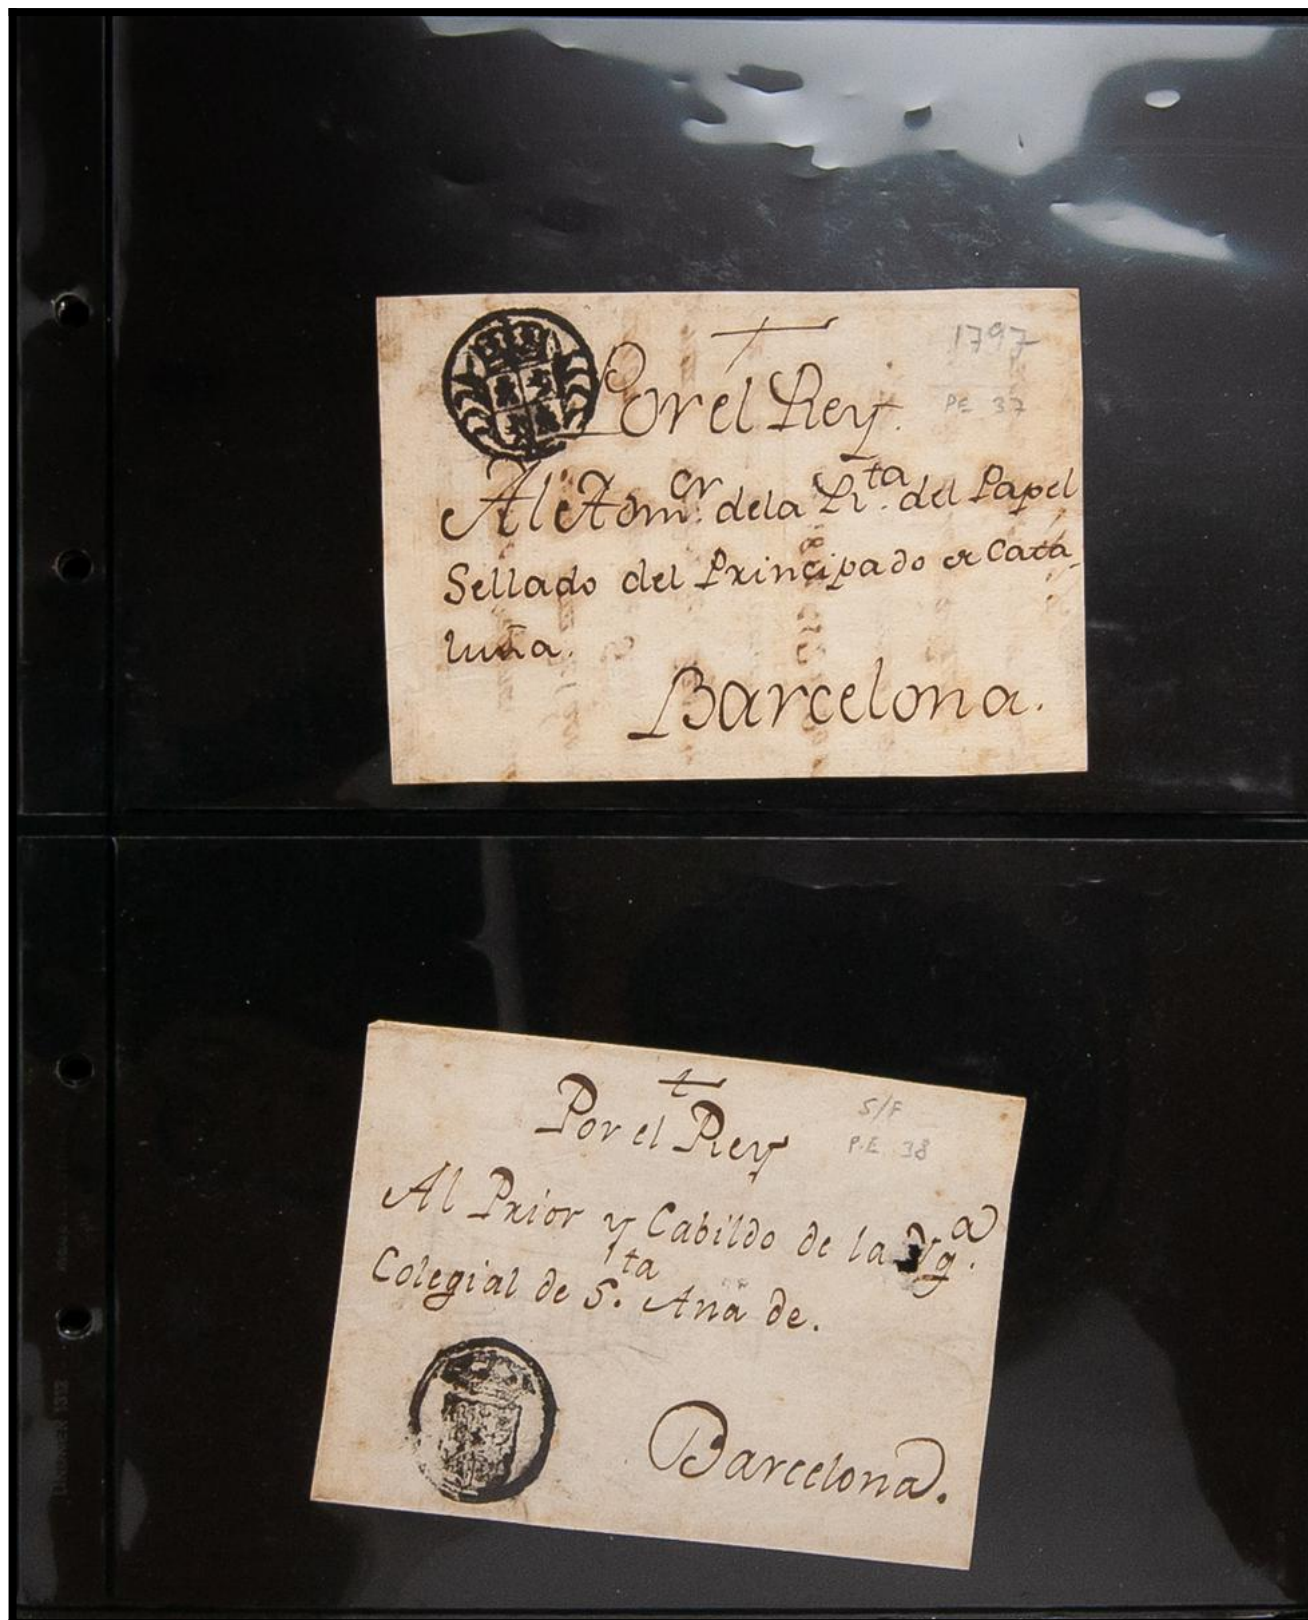 1797
Por el Rey.
PE 37
Al Adm.or de la R.ta del Papel
Sellado del Principado de Cata-
luña.
Barcelona.
S/F
Por el Rey
P.E. 38
Al Prior y Cabildo de la Yg.a
Colegial de S.ta Ana de.
Barcelona.